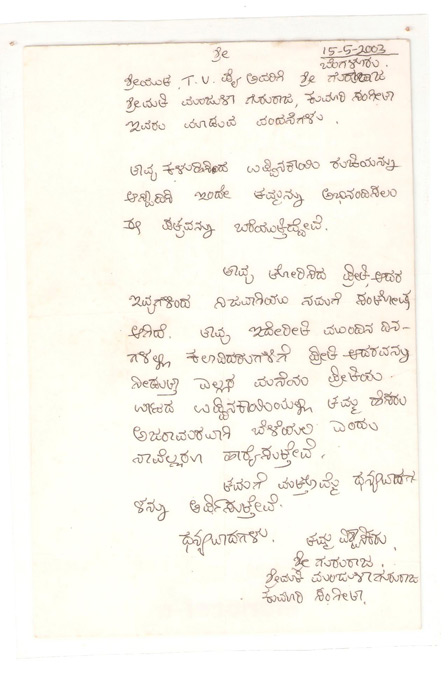 ಶ್ರೀ
15-5-2003
ಬೆಂಗಳೂರು.
ಶ್ರೀಯುತ T.V. ಪೈ ಅವರಿಗೆ ಶ್ರೀ ಗುರುರಾಜ
ಶ್ರೀಮತಿ ಮಂಜುಳಾ ಗುರುರಾಜ, ಕುಮಾರಿ ಸಂಗೀತಾ
ಇವರು ಮಾಡುವ ವಂದನೆಗಳು.
ತಾವು ಕಳುಹಿಸಿದ ಉಪ್ಪಿನಕಾಯಿ ರುಚಿಯನ್ನು
ಇಂದೇ ತಮ್ಮನ್ನು ಅಭಿನಂದಿಸಲು
ಈ ಪತ್ರವನ್ನು ಬರೆಯುತ್ತಿದ್ದೇವೆ.
ತಾವು ತೋರಿಸಿದ ಪ್ರೀತಿ-ಆದರ
ಇವುಗಳಿಂದ ನಿಜವಾಗಿಯೂ ನಮಗೆ ಸಂತೋಷ
ಆಗಿದೆ. ತಾವು ಇದೇರೀತಿ ಮುಂದಿನ ದಿನ-
ಗಳಲ್ಲಿ ಕಲಾವಿದರುಗಳಿಗೆ ಪ್ರೀತಿ-ಆದರವನ್ನು
ನೀಡುತ್ತಾ ಎಲ್ಲರ ಮನೆಯ
ಉಪ್ಪಿನಕಾಯಿಯಲ್ಲಿ ತಮ್ಮ ಹೆಸರು
ಅಜರಾಮರವಾಗಿ ಬೆಳೆಯಲಿ ಎಂದು
ನಾವೆಲ್ಲರೂ ಹಾರೈಸುತ್ತೇವೆ.
ತಮಗೆ ಮತ್ತೊಮ್ಮೆ ಧನ್ಯವಾದಗ
ಳನ್ನು ಅರ್ಪಿಸುತ್ತೇವೆ.
ಧನ್ಯವಾದಗಳು. ತಮ್ಮ ವಿಶ್ವಾಸಿಗಳು,
ಶ್ರೀ ಗುರುರಾಜ.
ಶ್ರೀಮತಿ ಮಂಜುಳಾ ಗುರುರಾಜ
ಕುಮಾರಿ ಸಂಗೀತಾ.